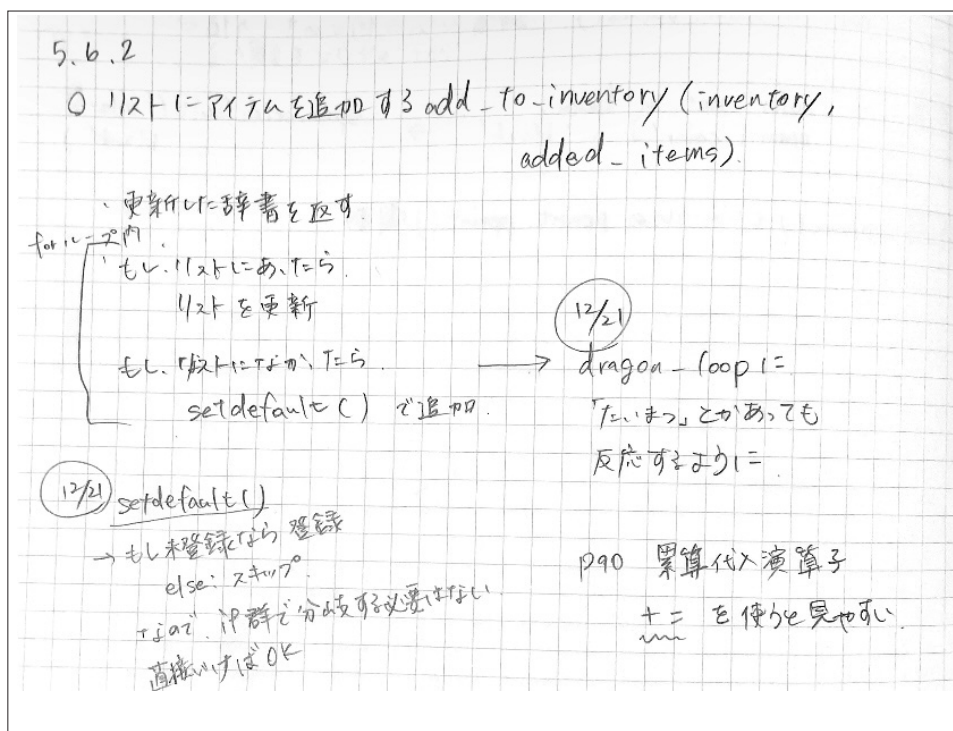 5.6.2
○ リストにアイテムを追加する add_to_inventory (inventory,
added_items)
・更新した辞書を返す
forループ内
・もし、リストにあったら
リストを更新
もし、リストになかったら
setdefault() で追加
12/21
→ dragon_loopに
「たいまつ」とかあっても
反応するように
12/21 setdefault()
→ もし未登録なら登録
else: スキップ
なので、if群で分岐する必要はない
直接いけばOK
P90 累算代入演算子
+= を使うと見やすい